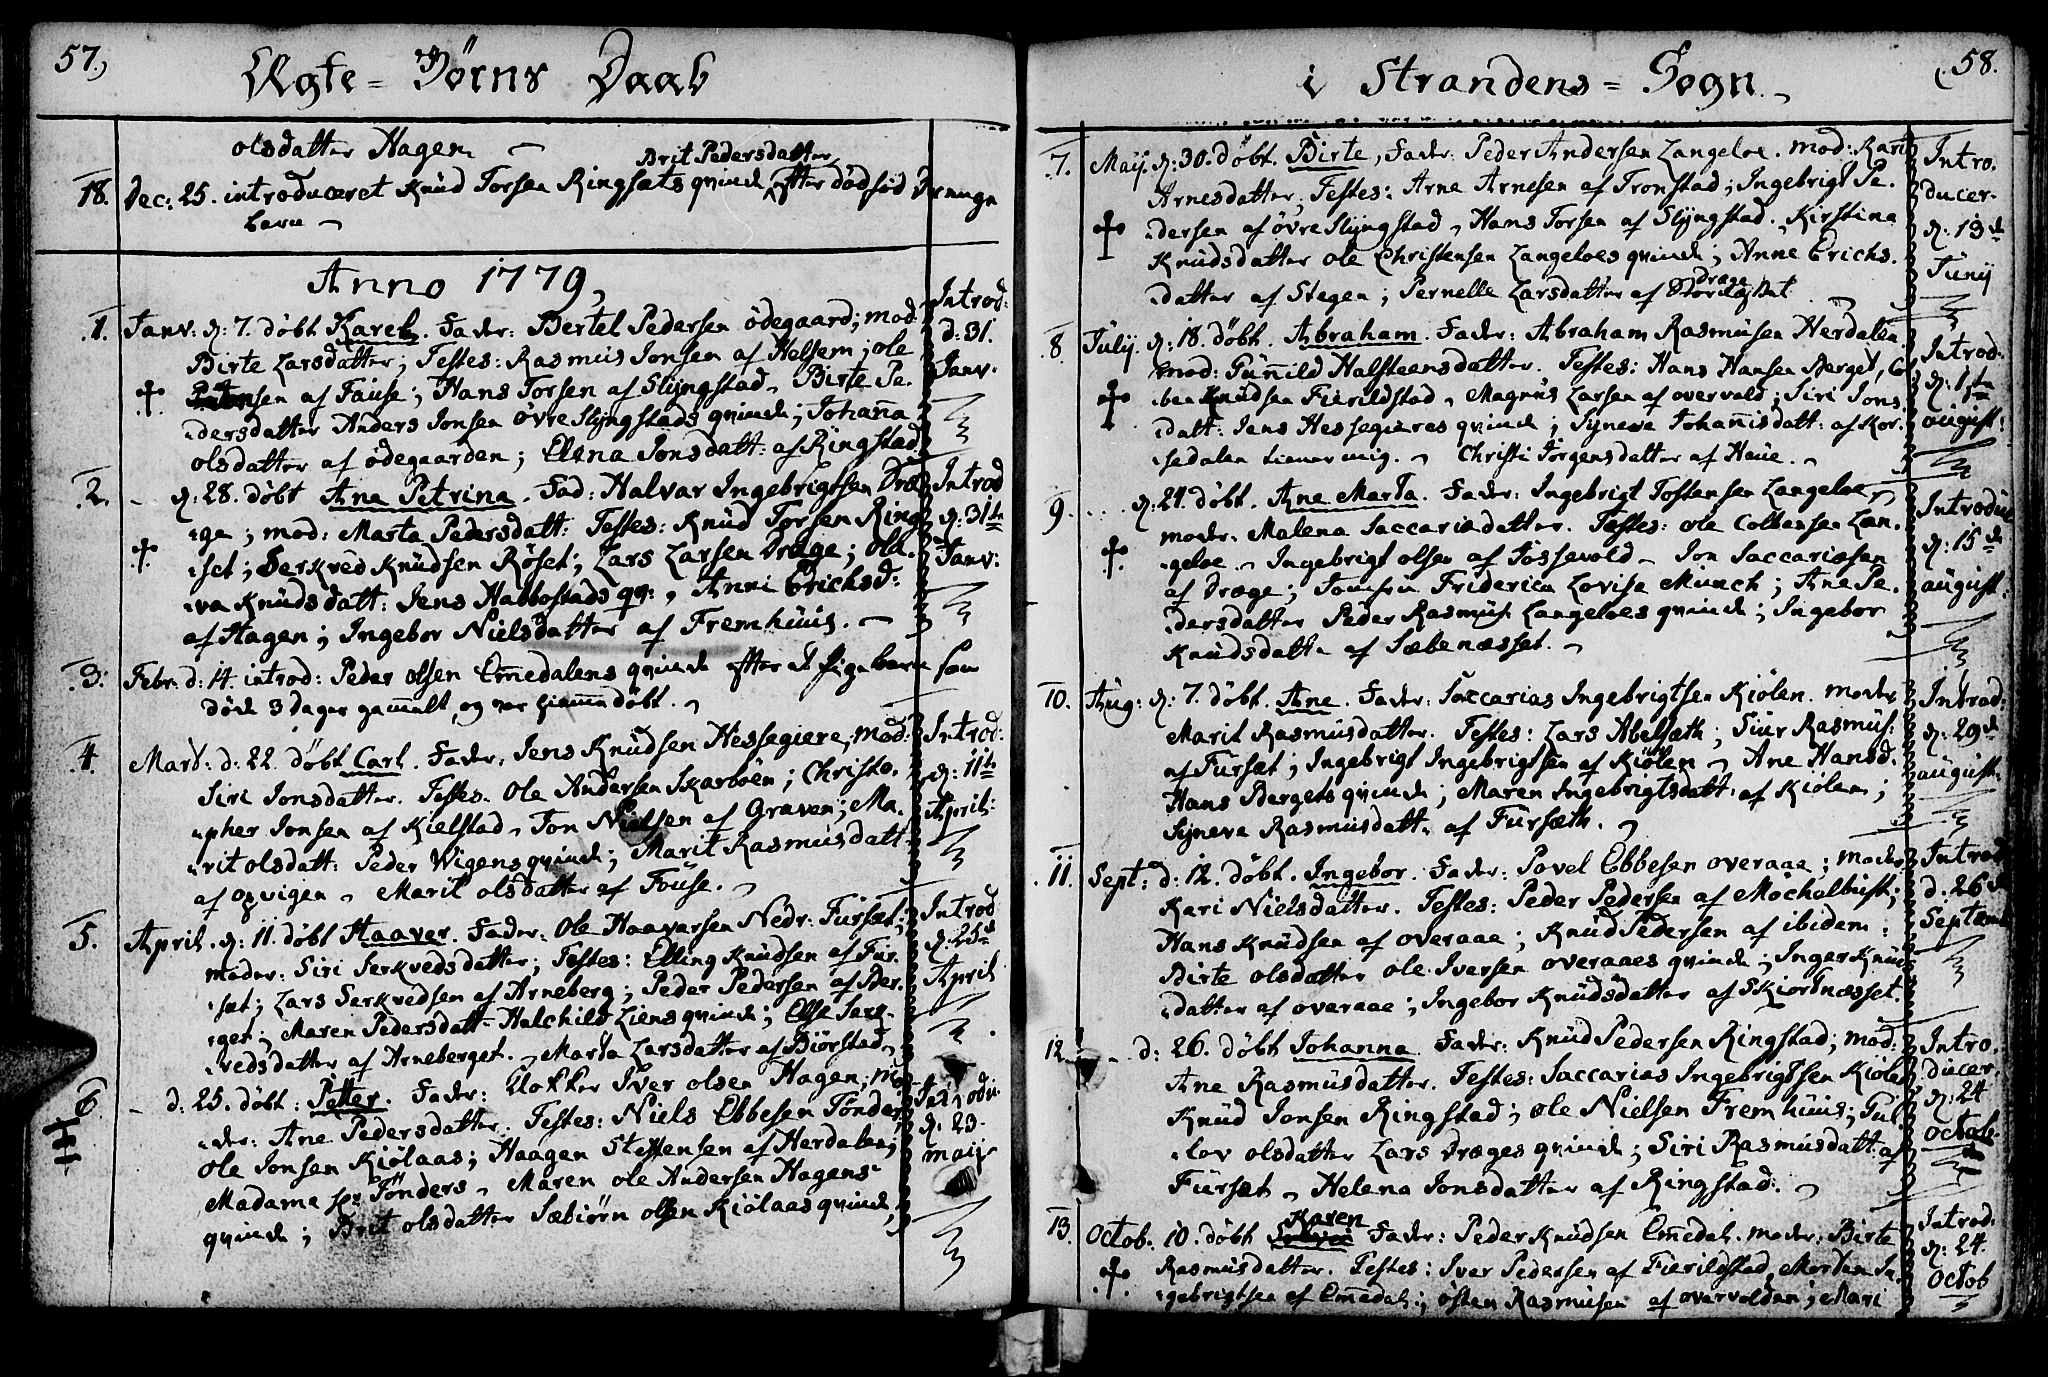 57.
Ægte = Börns Daab
olsdatter Hagen
18. Dec: 25. introduceret Knud Torsen Ringsæts qvinde Brit Pedersdatter efter dödföd Drenge
barn
Anno 1779,
1. Janv: d: 7. döbt Karen. Fader: Bertel Pedersen ödegaard; mod: Introd:
Birte Larsdatter; Testes: Rasmus Jonsen af Helsem; ole d: 31.
sen af Fause; Hans Torsen af Slyngstad, Birte Pe= Janv:
dersdatter Anders Jonsen övre Slyngstads qvinde; Johanna
olsdatter af ödegaarden; Elena Jonsdatt: af Ringstad
2. d: 28. döbt Ane Petrina. Fad: Halvar Ingebrigtsen Dræ= Introd
ge; mod: Marta Pedersdatt: Testes: Knud Torsen Ring= d: 31te
set; Serkved Knudsen Röset; Lars Larsen Dræge; Ola= Janv:
va Knudsdatt: Jens Habbostads qv:, Anni Erichsd:
af Hagen; Ingebor Nielsdatter af Fremhuus.
3. Febr. d: 14. introd: Peder olsen Emedalens qvinde efter et Pige barn som
döde 3 Dager gammelt, og var hiemmedöbt.
4. Mart: d: 22. döbt Carl. Fader: Jens Knudsen Hessegiere, mod: Introd:
Siri Jonsdatter. Testes: Ole Andersen Skarboen; Christo= d: 11te
pher Jonsen af Kielstad, Jon Nielsen af Graven; Ma= April:
rit olsdatt: Peder Wigens qvinde; Marit Rasmusdatt:
af opvigen, Marit olsdatter af Fouse.
5. April. d: 11. döbt Haaver. Fader: Ole Haavarsen Nedr: Fursæt; Introd
moder: Siri Serkvedsdatter; Testes: Elling Knudsen af Fur= d: 25de
set; Lars Serkvedsen af Arneberg; Peder Pedersen af Ber= April
get; Maren Pedersdatt: Halchild Liens qvinde; Else Serk=
vedsdatter af Arneberget. Marta Larsdatter af Biörstad
6. d: 25. döbt: Petter. Fader: Klokker Iver olsen Hagen; mo= Introdu.
der: Ane Pedersdatter. Testes: Niels Ebbesen Tönder, d: 23.
ole Jonsen Kiölaas; Haagen Steffensen af Herdalen; maij
Madame Sr Tönders, Maren ole Andersen Hagens
qvinde; Brit olsdatter Sæbiörn olsen Kiölaas qvinde,
58.
i Strandens = Sogn.
7. Maij. d: 30. döbt. Birte, Fader: Peder Andersen Langeloe. mod: Karit Intro.
Arnesdatter, Testes: Arne Arnesen af Tronstad; Ingebrigt Pe= ducer.
dersen af övre Slyngstad, Hans Torsen af Slyngstad. Kirstina d: 13de
Knudsdatter ole Christensen Langeloes qvinde; Anne Erichs= Junij
datter af Stegen; Pernelle Larsdatter af Dræge
8 Julij. d: 18. döbt. Abraham. Fader: Abraham Rasmusen Herdalen. Introd:
mod: Gunnild Halsteensdatter. Testes: Hans Hansen Berget, d: 1ste
Knudsen Fierildstad, Magnus Larsen af overvold; Siri Jons= august:
datt: Jens Hessegieres qvinde; Syneva Johannisdatt: af Kor=
sedalen tiener mig. Christi Jörgensdatter af Haue.
9. d: 24. döbt. Ane Marta. Fader: Ingebrigt Tostensen Langeloe, Introdu
moder: Malena Saccariædatter. Testes: ole Colbensen Lan= d: 15de
geloe. Ingebrigt olsen af Fossevold, Jon Saccariæsen august:
af Dræge; Jomfru Friderica Lovise Munch; Ane Pe=
dersdatter Peder Rasmus: Langeloes qvinde; Ingebor
Knudsdatter af Sæbenæsset.
10. Aug: d: 7. döbt. Ane. Fader: Saccarias Ingebrigtsen Kiölen. moder Introd:
Marit Rasmusdatter. Testes: Lars Abelsæth; Siur Rasmus: d: 29de
af Fursæt; Ingebrigt Ingebrigtsen af Kiölen, Ane Hansd. august.
Hans Bergets qvinde; Maren Ingebrigtsdatt: af Kiölen;
Syneva Rasmusdatt: af Fursæth.
11. Sept: d: 12. döbt. Ingebor. Fader: Povel Ebbesen overaae; moder Introd
Kari Nielsdatter. Testes: Peder Pedersen af Mochelbust; d. 26de
Hans Knudsen af overaae; Knud Pedersen af ibidem: Septemb
Birte olsdatter ole Iversen overaaes qvinde; Inger Knuds
datter af overaae; Ingebor Knudsdatter af Skiortnæsset.
12. d: 26. döbt Johanna. Fader: Knud Pedersen Ringstad; mod: Intro.
Ane Rasmusdatter. Testes: Saccarias Ingebrigtsen Kiölen ducer.
Knud Jonsen Ringstad; ole Nielsen Fremhuus; Gul= d: 24
lov olsdatter Lars Dræges qvinde; Siri Rasmusdatt: af octob:
Fursæt, Helena Jonsdatter af Ringstad:
13. Octob: 10. döbt Karen Fader: Peder Knudsen Emedal. moder: Birte Introd:
Rasmusdatter. Testes: Iver Pedersen af Fierildstad, Morten In= d: 24.
gebrigtsen af Emedal; östen Rasmusen af overvolden; Mari octob